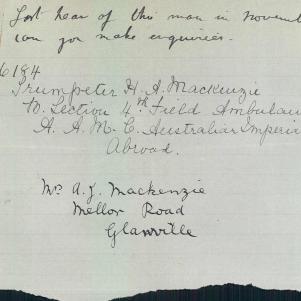 Last hear of this man in Novemb
can you make enquiries.
6184
Trumpeter H. A. Mackenzie
Section 4th Field Ambulan
A. A. M. C. Australian Imperia
Abroad.
Mr A. J. Mackenzie
Mellor Road
Glanville